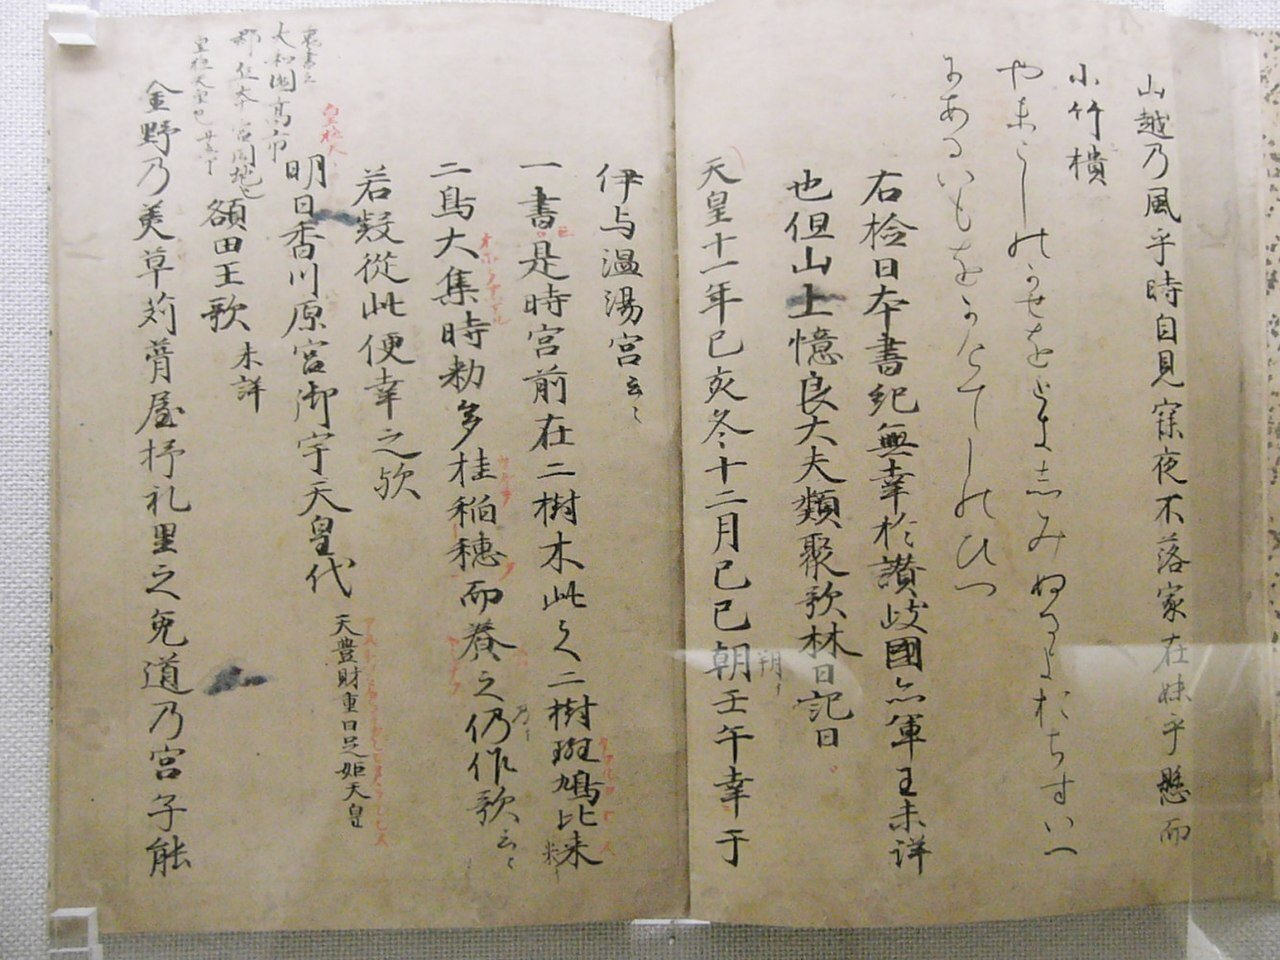 山越乃風乎時自見寐夜不落家在妹乎懸而
小竹樻
やまこしのかせをときしみぬるよおちすいへ
にあるいもをかけてしのひつ
右検日本書紀無幸於讃岐國亦軍王未詳
也但山上憶良大夫類聚歌林曰記曰
天皇十一年己亥冬十二月己巳朝壬午幸于
朔
伊与温湯宮云々
一書是時宮前在二樹木此之二樹斑鳩比来
米
二鳥大集時勅多桂稲穂而養之仍作歌云々
乃
若疑従此便幸之歟
明日香川原宮御宇天皇代 天豊財重日足姫天皇
皇極天
額田王歌 未詳
金野乃美草苅葺屋抒礼里之兔道乃宮子能
裏書云
大和國高市
郡